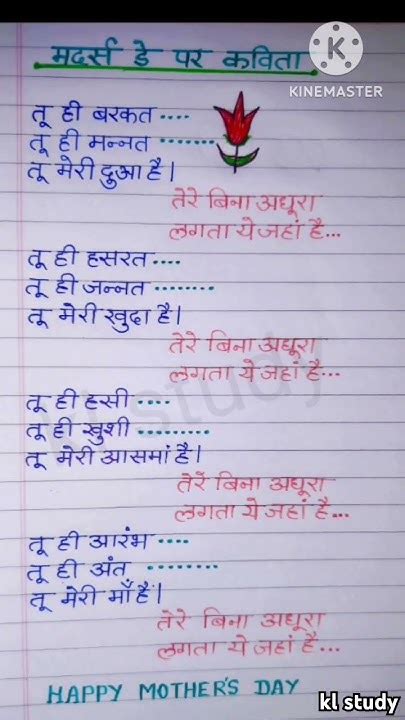 मदर्स डे पर कविता
K
KINEMASTER
तू ही बरकत ....
तू ही मन्नत ........
तू मेरी दुआ है।
तेरे बिना अधूरा
लगता ये जहां है...
तू ही हसरत....
तू ही जन्नत ........
तू मेरी खुदा है।
तेरे बिना अधूरा
लगता ये जहां है...
तू ही हसी ....
तू ही खुशी .........
तू मेरी आसमां है।
तेरे बिना अधूरा
लगता ये जहां है...
तू ही आरंभ ....
तू ही अंत ........
तू मेरी माँ है।
तेरे बिना अधूरा
लगता ये जहां है...
HAPPY MOTHER'S DAY
kl study
kl study